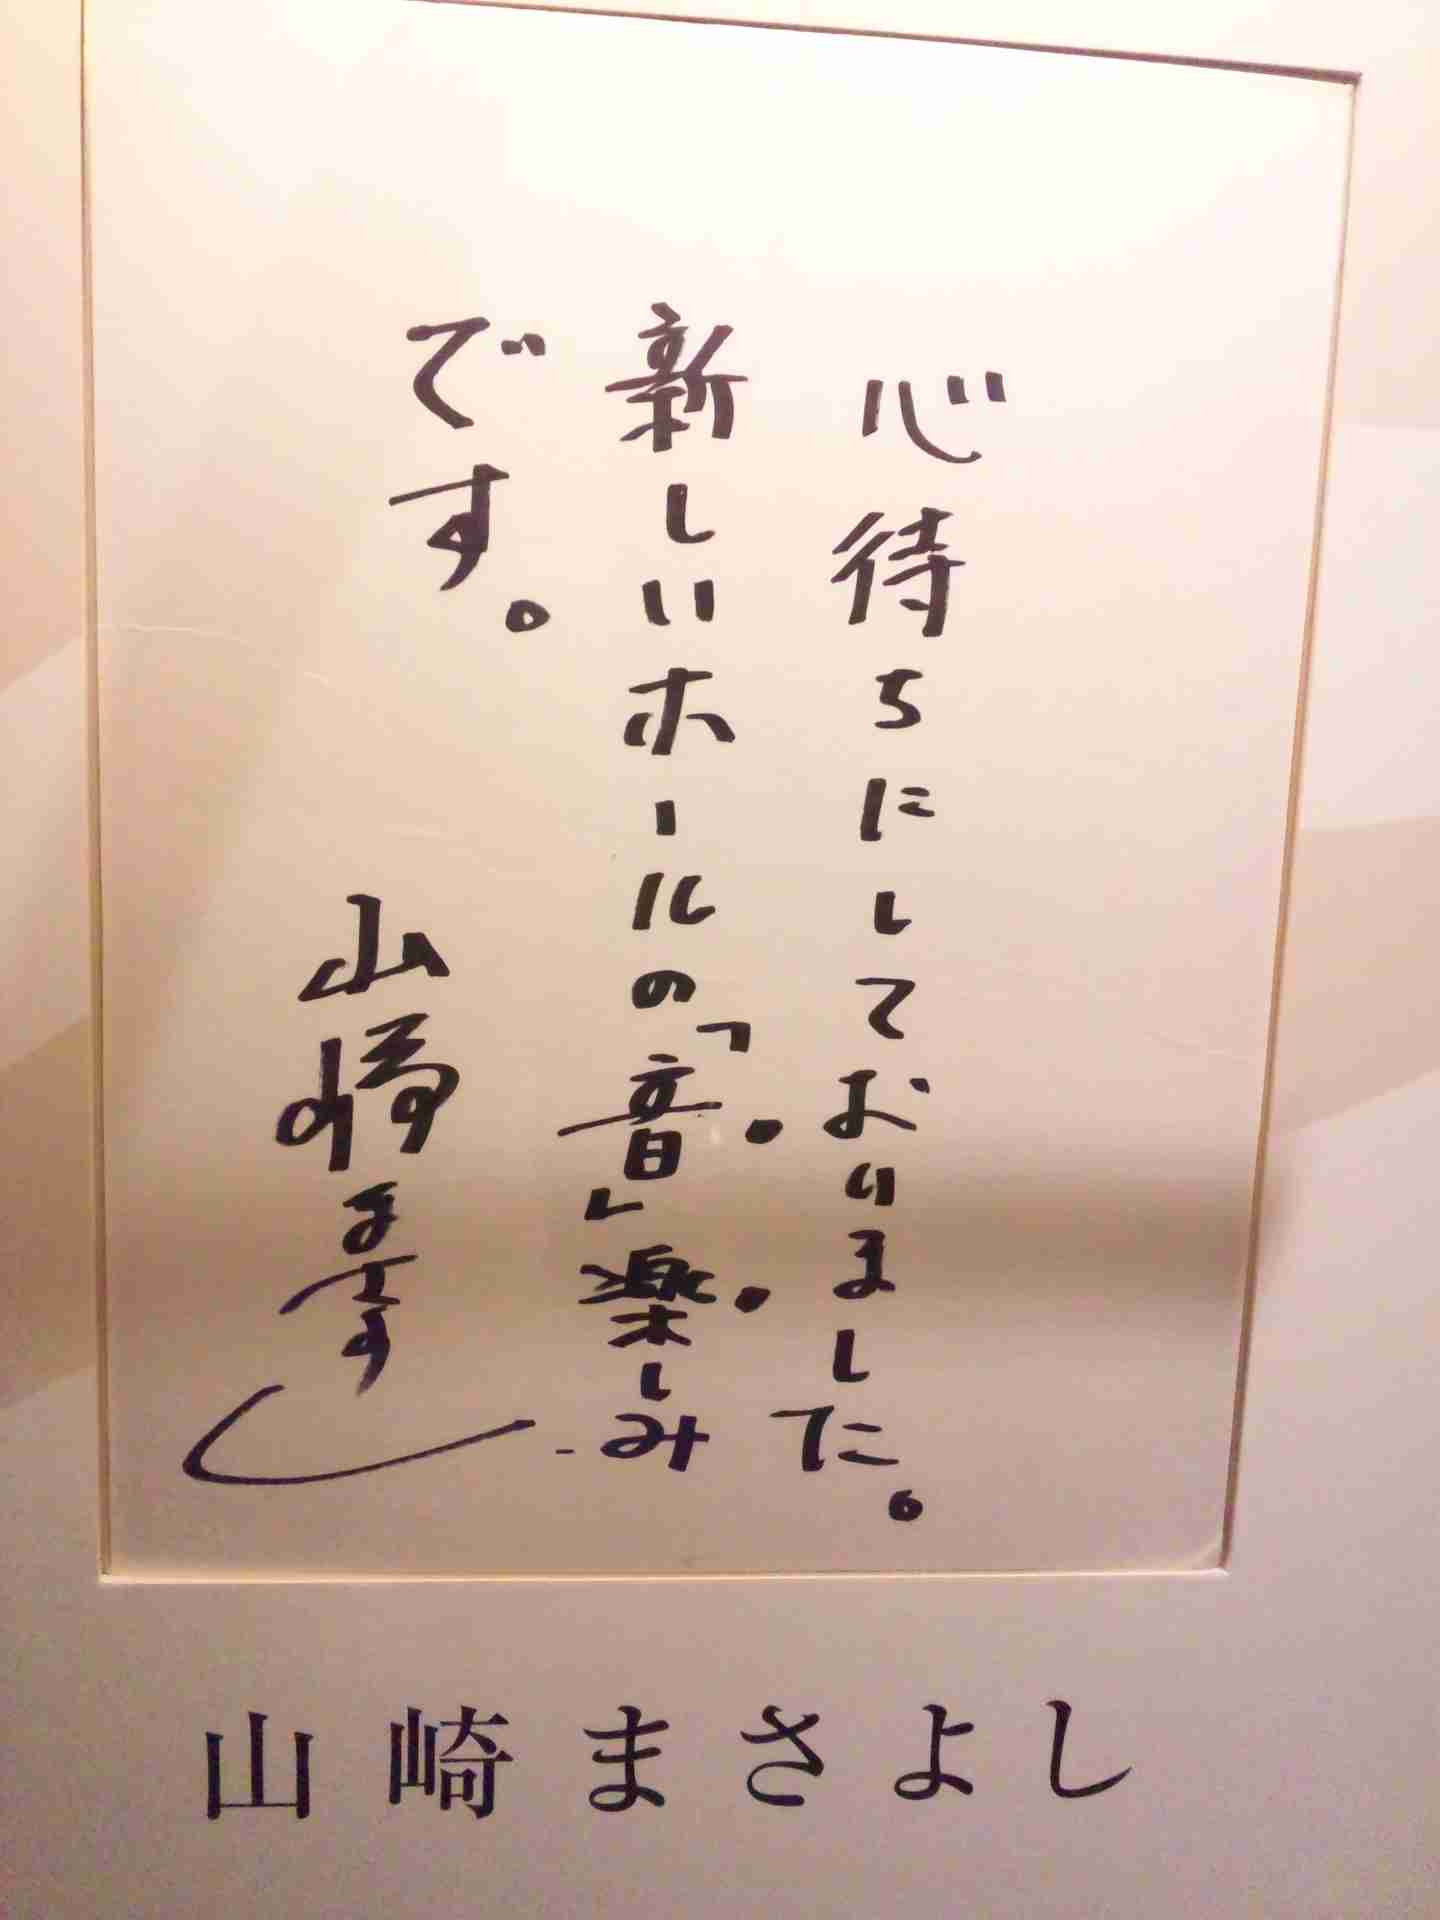 心待ちにしておりました。
新しいホールの「音」楽しみ
です。
山崎まさよし
山崎まさよし